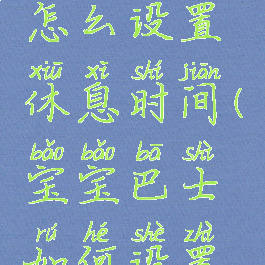 怎么设置
xiū xī shí jiān
休息时间(
bǎo bǎo bā shì
宝宝巴士
rú hé shè zhì
如何设置